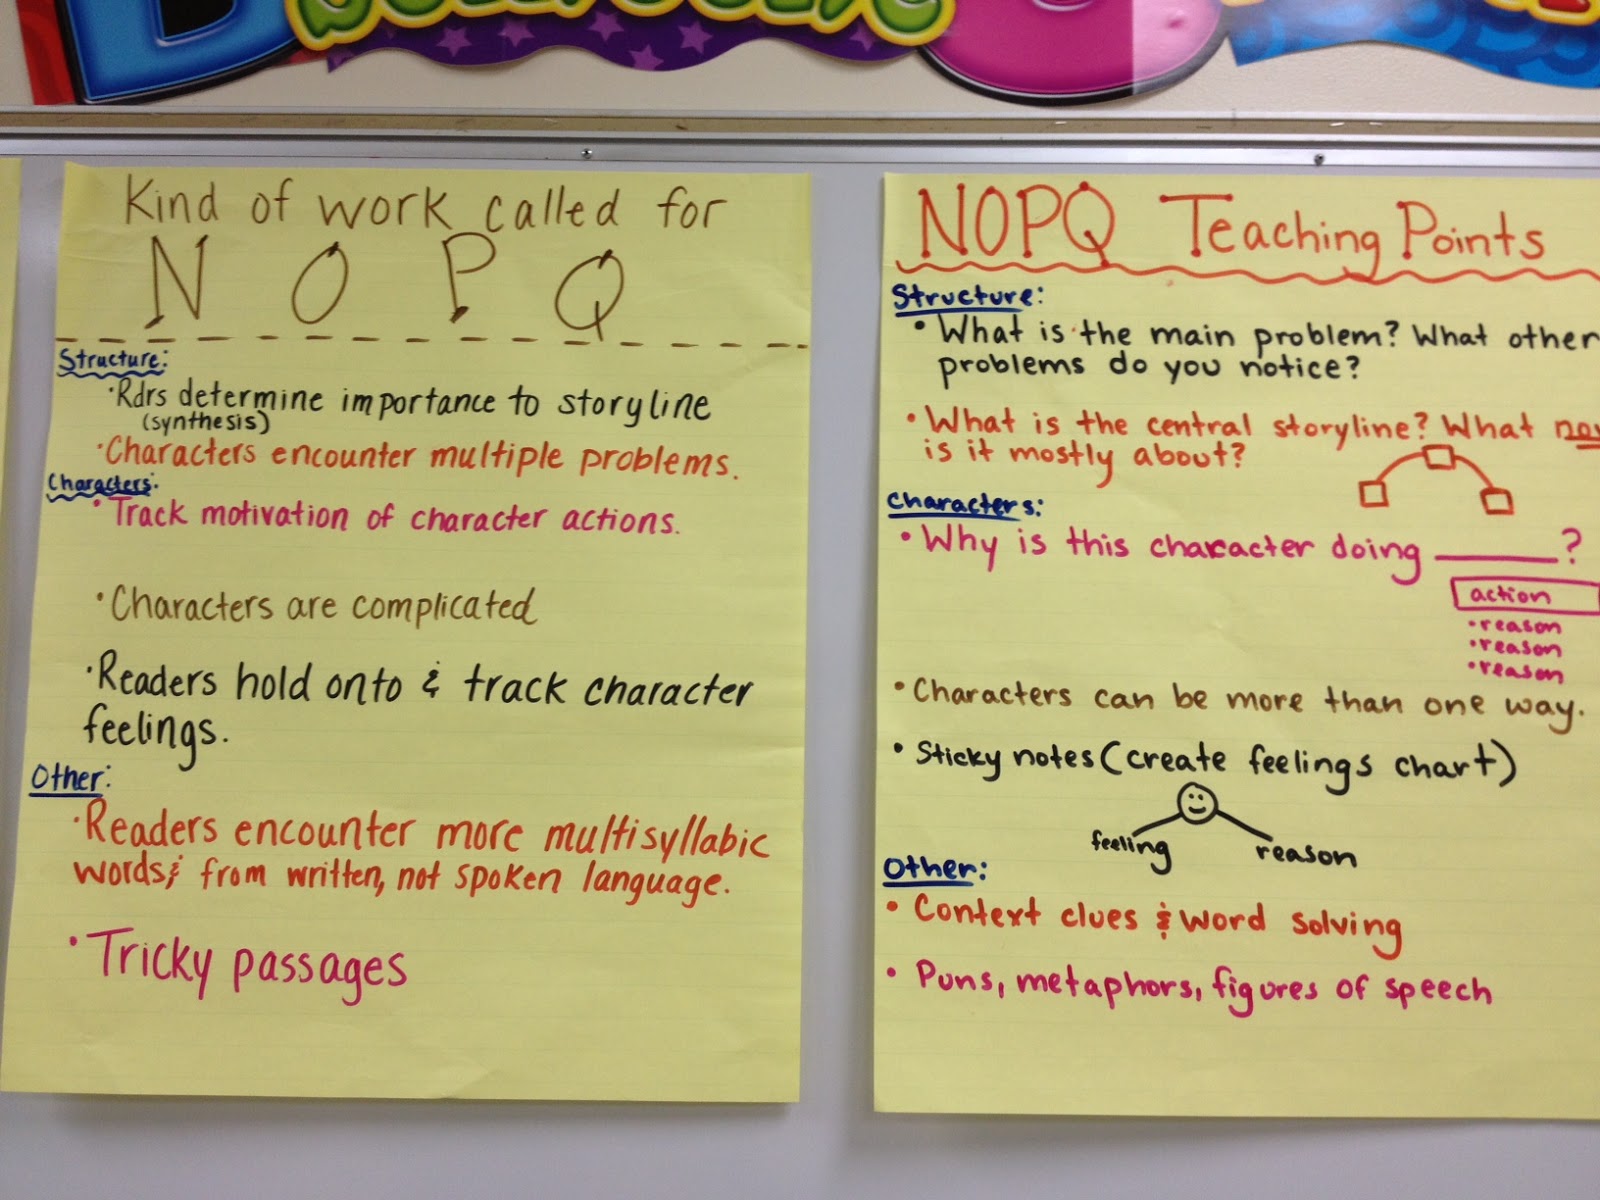 Kind of work called for
N O P Q
Structure:
• Rdrs determine importance to storyline
(synthesis)
• Characters encounter multiple problems.
Characters:
• Track motivation of character actions.
• Characters are complicated
• Readers hold onto & track character
feelings.
Other:
• Readers encounter more multisyllabic
words & from written, not spoken language.
• Tricky passages
NOPQ Teaching Points
Structure:
• What is the main problem? What other
problems do you notice?
• What is the central storyline? What
is it mostly about?
Characters:
• Why is this character doing ______?
action
• reason
• reason
• reason
• Characters can be more than one way.
• Sticky notes (create feelings chart)
feeling
reason
Other:
• Context clues & word solving
• Puns, metaphors, figures of speech